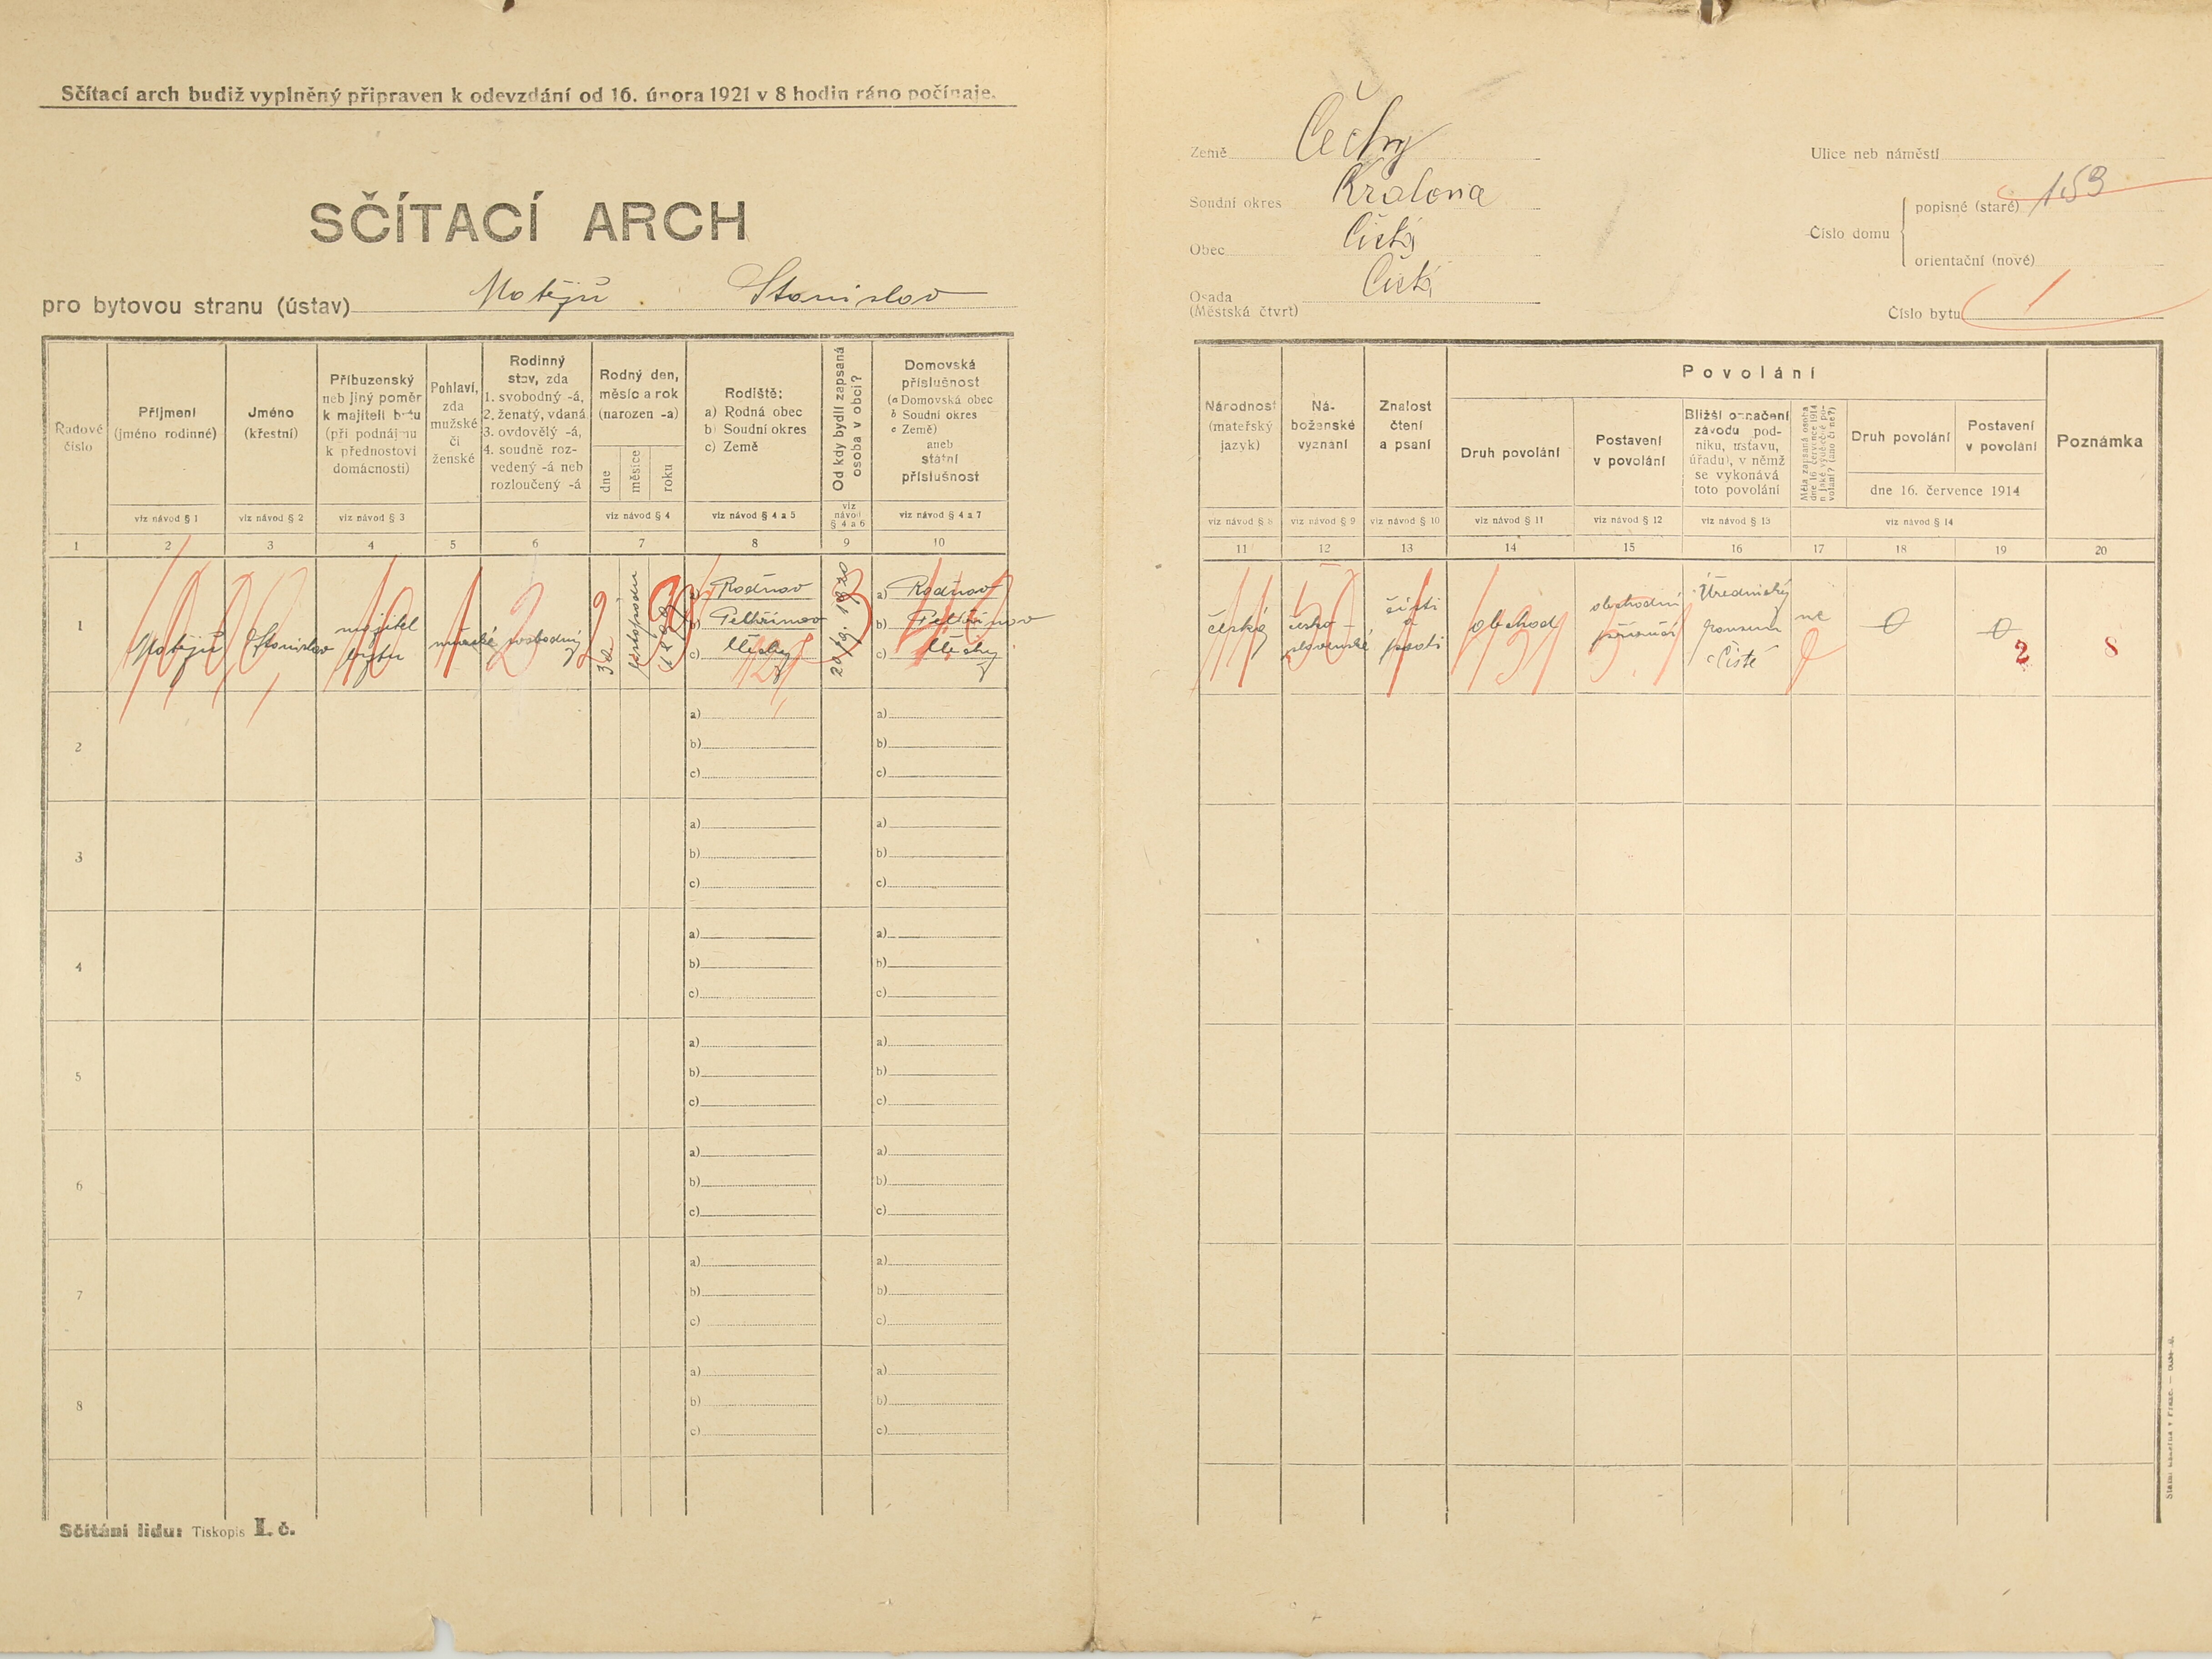 Sčítací arch budiž vyplněný připraven k odevzdání od 16. února 1921 v 8 hodin ráno počínaje.
SČÍTACÍ ARCH
pro bytovou stranu (ústav) Matějů Stanislav
Země Čechy
Soudní okres Kralovice
Obec Čistá
Osada Čistá
(Městská čtvrť)
Ulice neb náměstí
Číslo domu
popisné (staré) 153
orientační (nové)
Číslo bytu 1
Řadové číslo
Příjmení (jméno rodinné)
Jméno (křestní)
Příbuzenský neb jiný poměr k majiteli bytu (při podnájmu k přednostovi domácnosti)
Pohlaví, zda mužské či ženské
Rodinný stav, zda
1. svobodný -á,
2. ženatý, vdaná
3. ovdovělý -á,
4. soudně rozvedený -á neb rozloučený -á
Rodný den, měsíc a rok (narozen -a)
dne
měsíce
roku
Rodiště:
a) Rodná obec
b) Soudní okres
c) Země
Od kdy bydlí zapsaná osoba v obci?
Domovská příslušnost
(a Domovská obec
b Soudní okres
c Země)
aneb
státní
příslušnost
viz návod § 1
viz návod § 2
viz návod § 3
viz návod § 4
viz návod § 4 a 5
viz návod § 4 a 6
viz návod § 4 a 7
1 2 3 4 5 6 7 8 9 10
Národnost (mateřský jazyk)
Náboženské vyznání
Znalost čtení a psaní
Povolání
Druh povolání
Postavení v povolání
Bližší označení závodu podniku, ústavu, úřadu), v němž se vykonává toto povolání
Měla zapsaná osoba dne 16 července 1914 nějaké výdělečné povolání? (ano či ne?)
Druh povolání
Postavení v povolání
dne 16. července 1914
Poznámka
viz návod § 8
viz návod § 9
viz návod § 10
viz návod § 11
viz návod § 12
viz návod § 13
viz návod § 14
11 12 13 14 15 16 17 18 19 20
1
Matějů
Stanislav
majitel
bytu
mužské
svobodný
30
listopadu
1898
a) Rodinov
b) Pelhřimov
c) Čechy
20/9. 1920
a) Rodinov
b) Pelhřimov
c) Čechy
česká
česko-
slovenské
čísti
a
psáti
obchod
obchodní
příručí
Úřednický
konsum
Čisté
ne
0
0
2
8
2
a)
b)
c)
a)
b)
c)
3
a)
b)
c)
a)
b)
c)
4
a)
b)
c)
a)
b)
c)
5
a)
b)
c)
a)
b)
c)
6
a)
b)
c)
a)
b)
c)
7
a)
b)
c)
a)
b)
c)
8
a)
b)
c)
a)
b)
c)
Sčítání lidu: Tiskopis I. č.